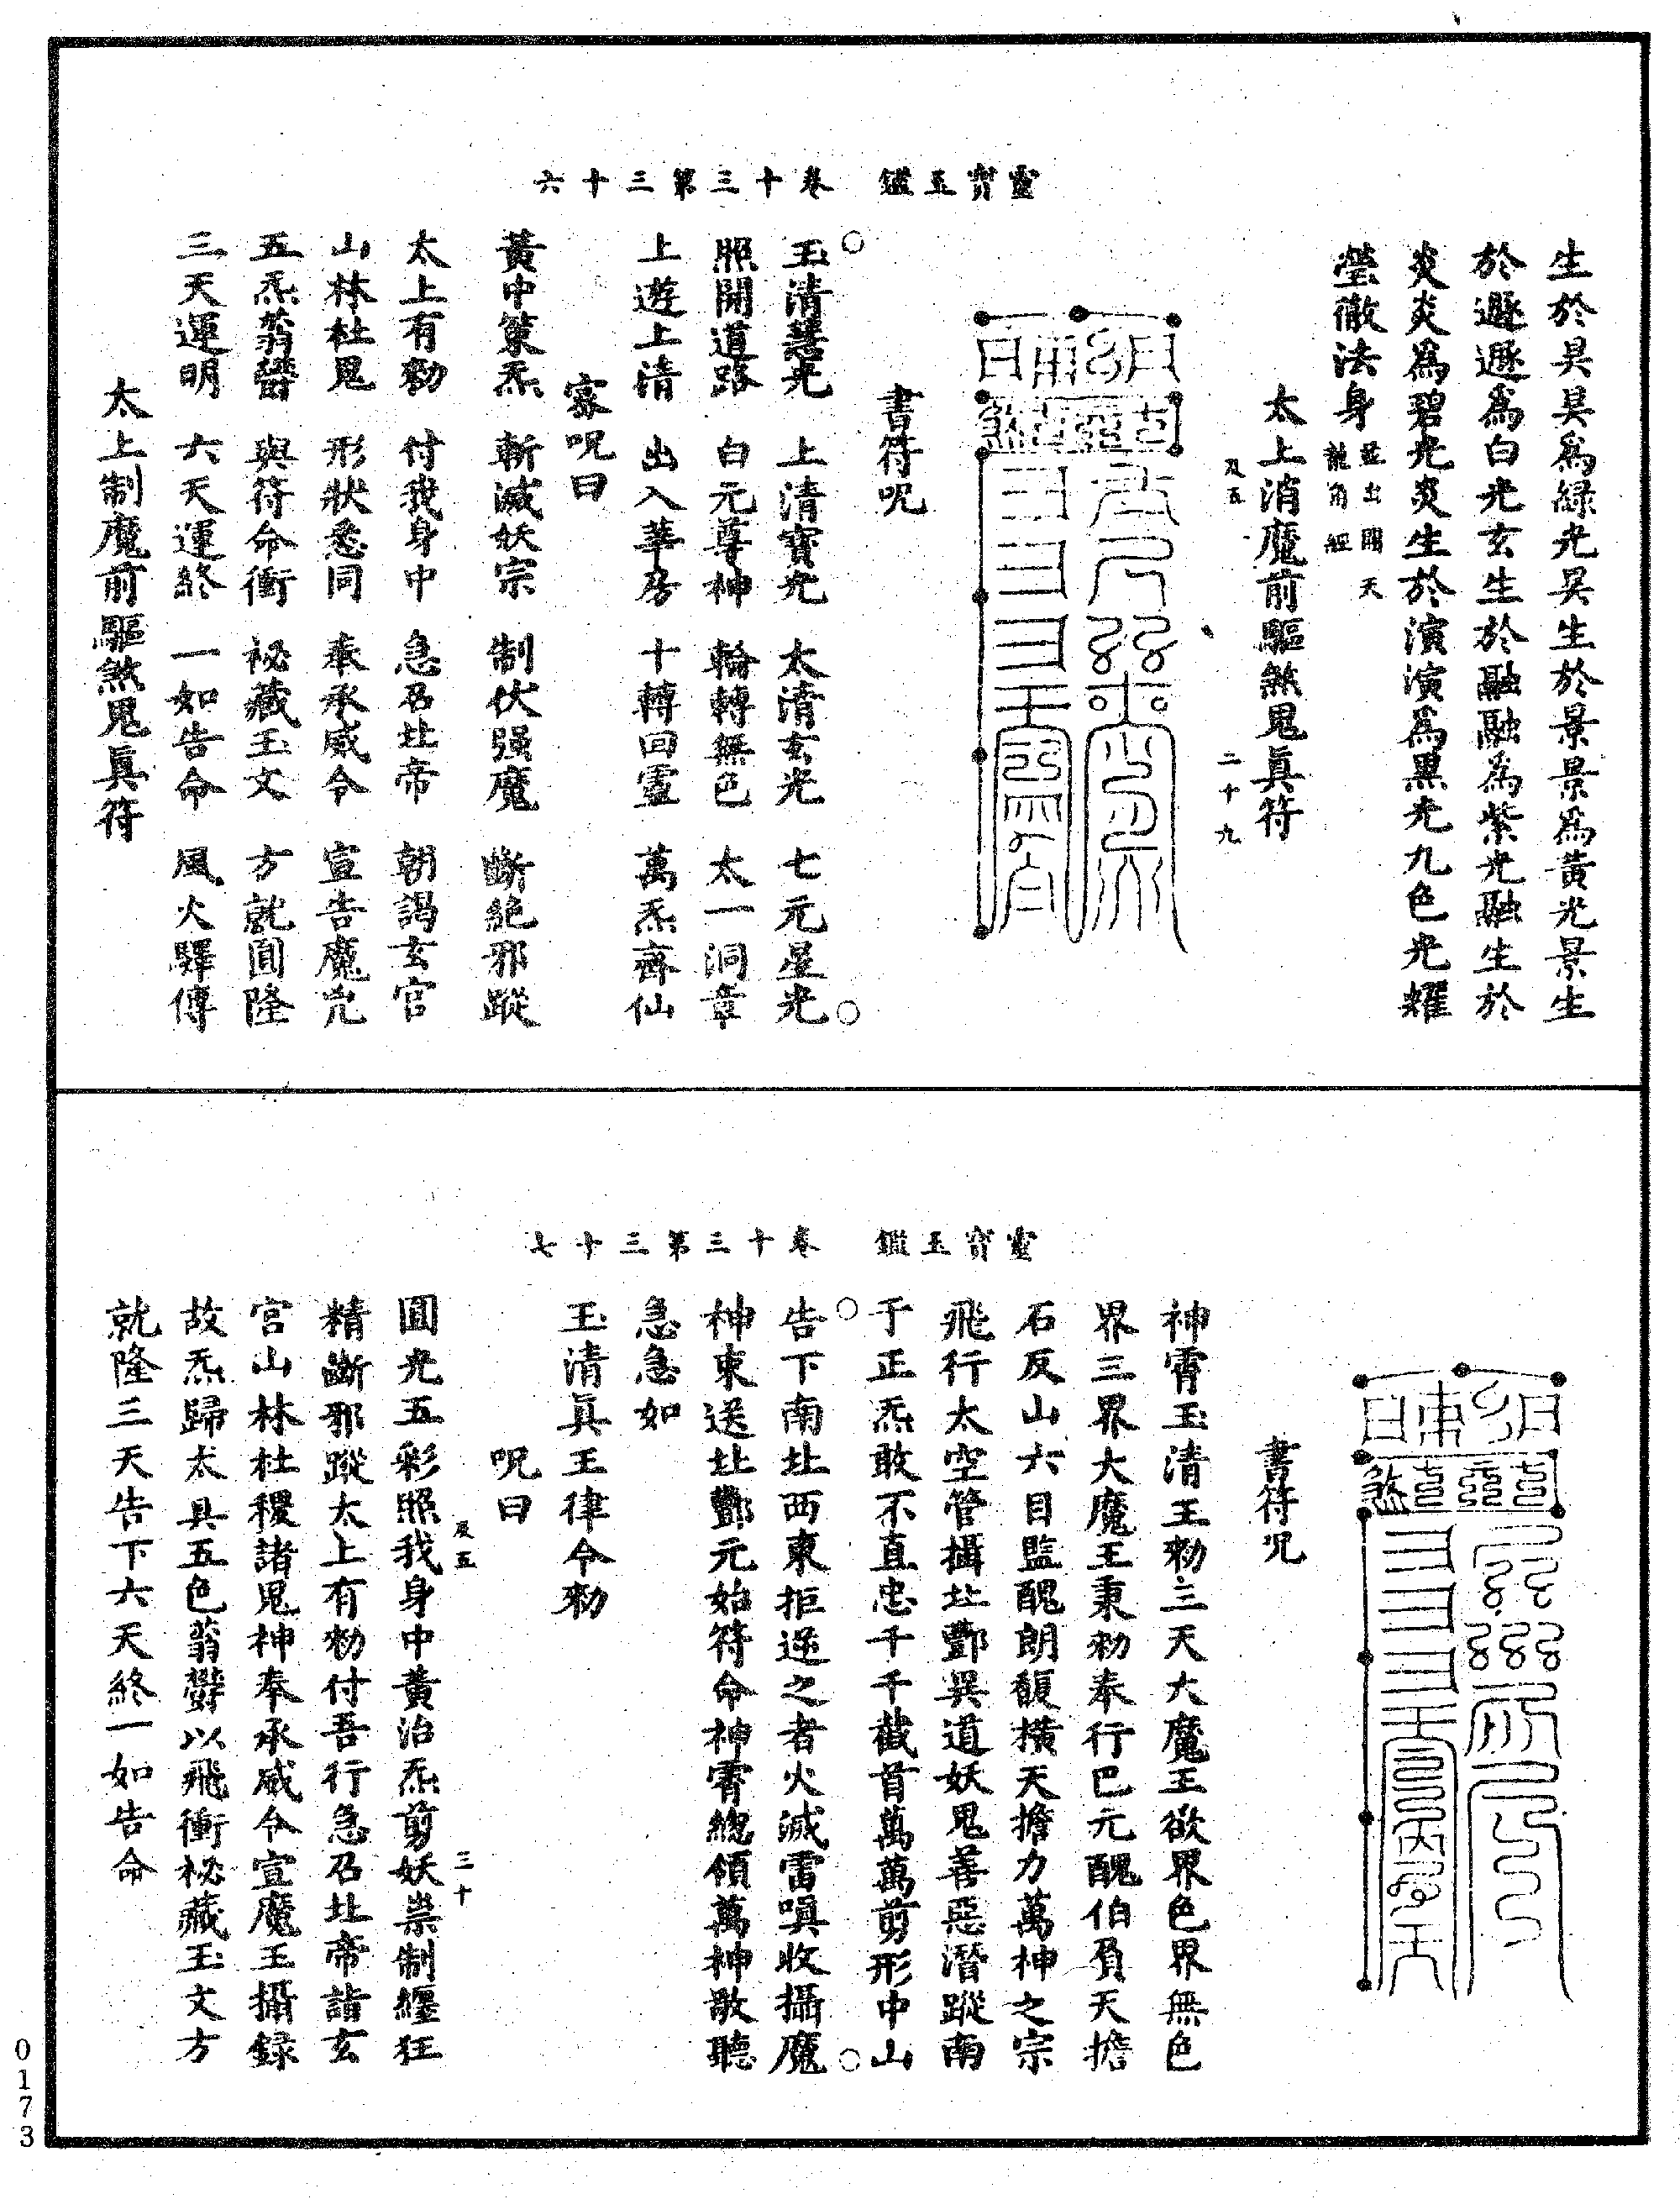 靈寶玉鑑　卷三十第三十六
生於昊昊爲綠光昊生於景景爲黃光景生
於遯遯爲白光玄生於融融爲紫光融生於
炎炎爲碧光炎生於演演爲黑光九色光耀
瑩徹法身並出開天龍角經
太上消魔前驅煞鬼眞符
及五　二十九
書符呪
玉清慧光　上清寶光　太清玄光　七元星光
照開道路　白元尊神　輪轉無色　太一洞章
上遊上清　出入華房　十轉回靈　萬炁齊仙
密呪曰
黃中策炁　斬滅妖宗　制伏强魔　斷絕邪蹤
太上有勑　付我身中　急召北帝　朝謁玄宫
山林社鬼　形狀悉同　奉承威令　宣告魔兇
五炁蓊鬱　與符命衝　祕藏玉文　方就圓隆
三天運明　六天運終　一如告命　風火驛傳
太上制魔前驅煞鬼眞符
靈寶玉鑑　卷三十第三十七
書符呪
神霄玉清王勑三天大魔王欲界色界無色
界三界大魔王秉勑奉行巴元醜伯負天擔
石反山六目監醜朗馥橫天擔力萬神之宗
飛行太空管攝北酆異道妖鬼善惡潛蹤南
于正炁敢不直忠千千截首萬萬剪形中山
告下南北西東拒逆之者火滅雷嗔收攝魔
神束送北酆元始符命神霄總領萬神敬聽
急急如
玉清眞王律令勑
呪曰
及五　三十
圓光五彩照我身中黃治炁剪妖祟制纏狂
精斷邪蹤太上有勑付吾行急召北帝詣玄
宫山林社稷諸鬼神奉承威令宣魔王攝録
故炁歸太具五色蓊鬱以飛衝祕藏玉文方
就隆三天告下六天終一如告命
0173